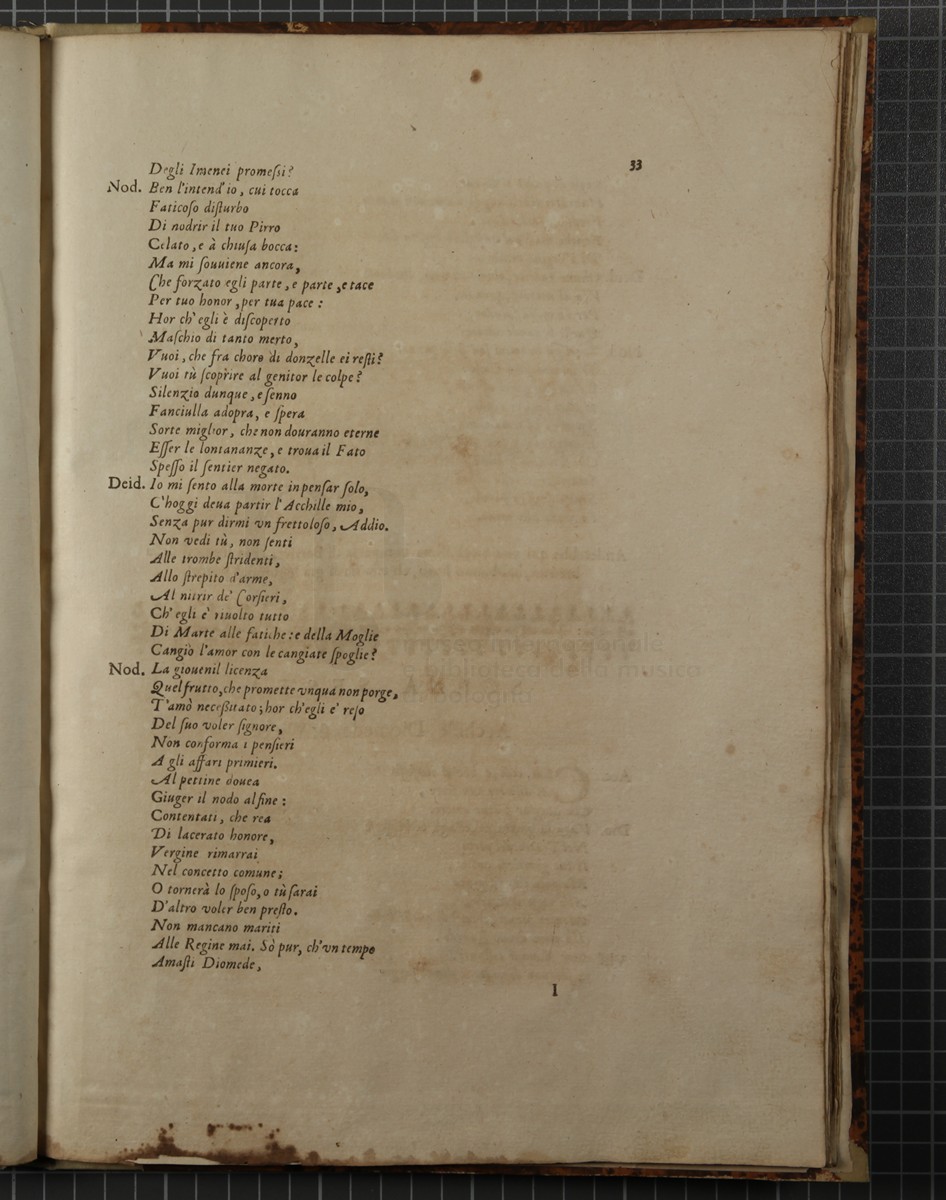 33
Degli Imenei promeſsi?
Nod. Ben l'intend' io, cui tocca
Faticoſo diſturbo
Di nodrir il tuo Pirro
Celato, e à chiuſa bocca:
Ma mi ſouuiene ancora,
Che forzato egli parte, e parte, e tace
Per tuo honor, per tua pace:
Hor ch' egli è diſcoperto
Maſchio di tanto merto,
Vuoi, che fra choro di donzelle ei reſti?
Vuoi tù ſcoprire al genitor le colpe?
Silenzio dunque, e ſenno
Fanciulla adopra, e ſpera
Sorte miglior, che non douranno eterne
Eſſer le lontananze, e troua il Fato
Speſſo il ſentier negato.
Deid. Io mi ſento alla morte in penſar ſolo,
C'hoggi deua partir l'Acchille mio,
Senza pur dirmi vn frettoloſo, Addio.
Non vedi tù, non ſenti
Alle trombe ſtridenti,
Allo ſtrepito d'arme,
Al nitrir de' Corſieri,
Ch' egli e' riuolto tutto
Di Marte alle fatiche: e della Moglie
Cangiò l'amor con le cangiate ſpoglie?
Nod. La giouenil licenza
Quel frutto, che promette vnqua non porge,
T'amò neceſsitato; hor ch'egli e' reſo
Del ſuo voler ſignore,
Non conforma i penſieri
A gli affari primieri.
Al pettine douea
Giuger il nodo alfine:
Contentati, che rea
Di lacerato honore,
Vergine rimarrai
Nel concetto comune;
O tornerà lo ſpoſo, o tù ſarai
D'altro voler ben preſto.
Non mancano mariti
Alle Regine mai. Sò pur, ch'vn tempo
Amaſti Diomede,
I